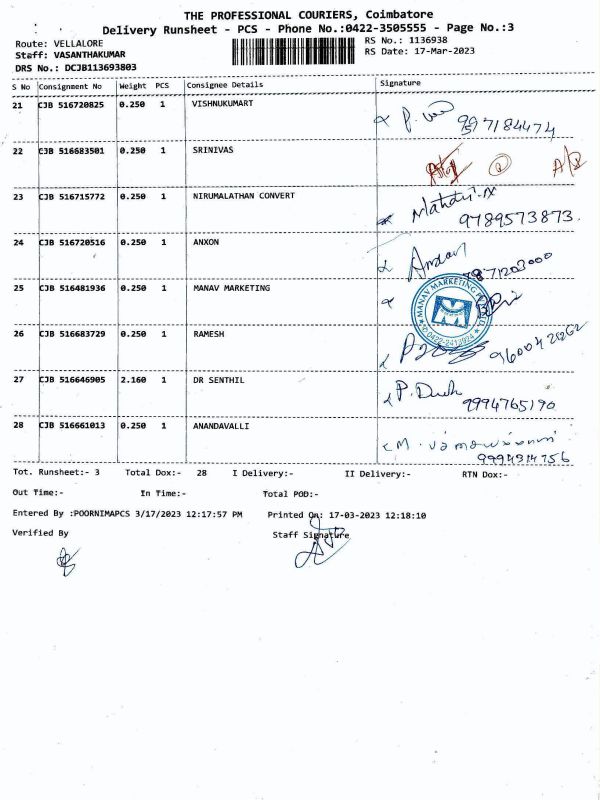 THE PROFESSIONAL COURIERS, Coimbatore
Delivery Runsheet - PCS - Phone No.:0422-3505555 - Page No.:3
Route: VELLALORE RS No.: 1136938
Staff: VASANTHAKUMAR RS Date: 17-Mar-2023
DRS No.: DCJB113693803
S No Consignment No Weight PCS Consignee Details Signature
21 CJB 516720825 0.250 1 VISHNUKUMART
22 CJB 516683501 0.250 1 SRINIVAS
23 CJB 516715772 0.250 1 NIRUMALATHAN CONVERT
9789573873.
24 CJB 516720516 0.250 1 ANXON
7871203000
25 CJB 516481936 0.250 1 MANAV MARKETING
MANAV MARKETING
26 CJB 516683729 0.250 1 RAMESH
27 CJB 516646905 2.160 1 DR SENTHIL
9994765190
28 CJB 516661013 0.250 1 ANANDAVALLI
9994914756
Tot. Runsheet:- 3 Total Dox:- 28 I Delivery:- II Delivery:- RTN Dox:-
Out Time:- In Time:- Total POD:-
Entered By :POORNIMAPCS 3/17/2023 12:17:57 PM Printed On: 17-03-2023 12:18:10
Verified By Staff Signature